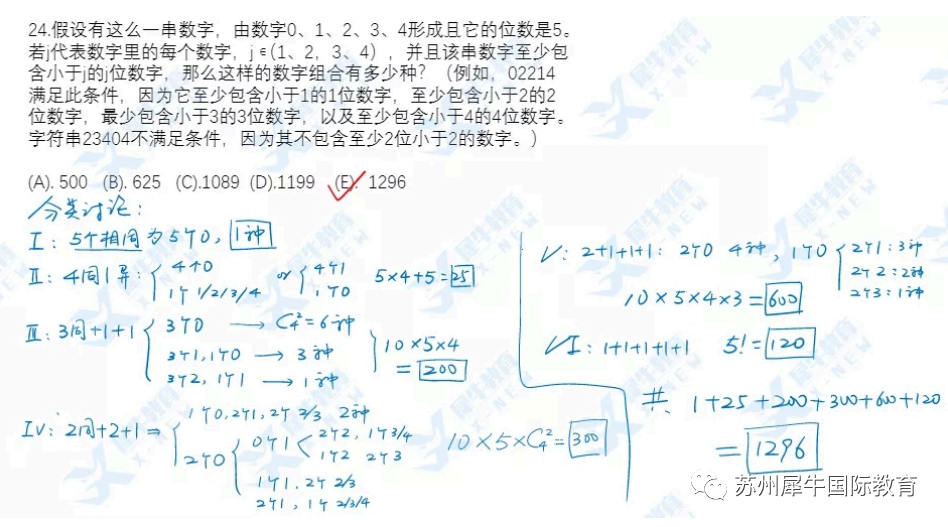 24.假设有这么一串数字，由数字0、1、2、3、4形成且它的位数是5。
若j代表数字里的每个数字，j ∈(1、2，3、4），并且该串数字至少包
含小于j的j位数字，那么这样的数字组合有多少种？（例如，02214
满足此条件，因为它至少包含小于1的1位数字，至少包含小于2的2
位数字，最少包含小于3的3位数字，以及至少包含小于4的4位数字。
字符串23404不满足条件，因为其不包含至少2位小于2的数字。）
(A). 500 (B). 625 (C).1089 (D).1199 (E). 1296
分类讨论：
I：5个相同为5个0，1种
II：4同1异：4个0 or 4个1 5×4+5=25
1个1/2/3/4 1个0
III：3同+1+1 3个0 → C₄²=6种
3个1,1个0 → 3种 10×5×4
3个2,1个1 → 1种 =200
IV：2同+2+1 ⇒ 1个0,2个1,2个2/3 2种
2个0 0个1 2个2,1个3/4
1个2 2个3
1个1.2个2/3
2个1,1个2/3/4
10×5×C₄²=300
V：2+1+1+1：2个0 4种，1个0 2个1：3种
2个2：2种
2个3：1种
10×5×4×3=600
VI：1+1+1+1+1 5!=120
共 1+25+200+300+600+120
=1296
苏州犀牛国际教育
犀牛教育
X-NEW